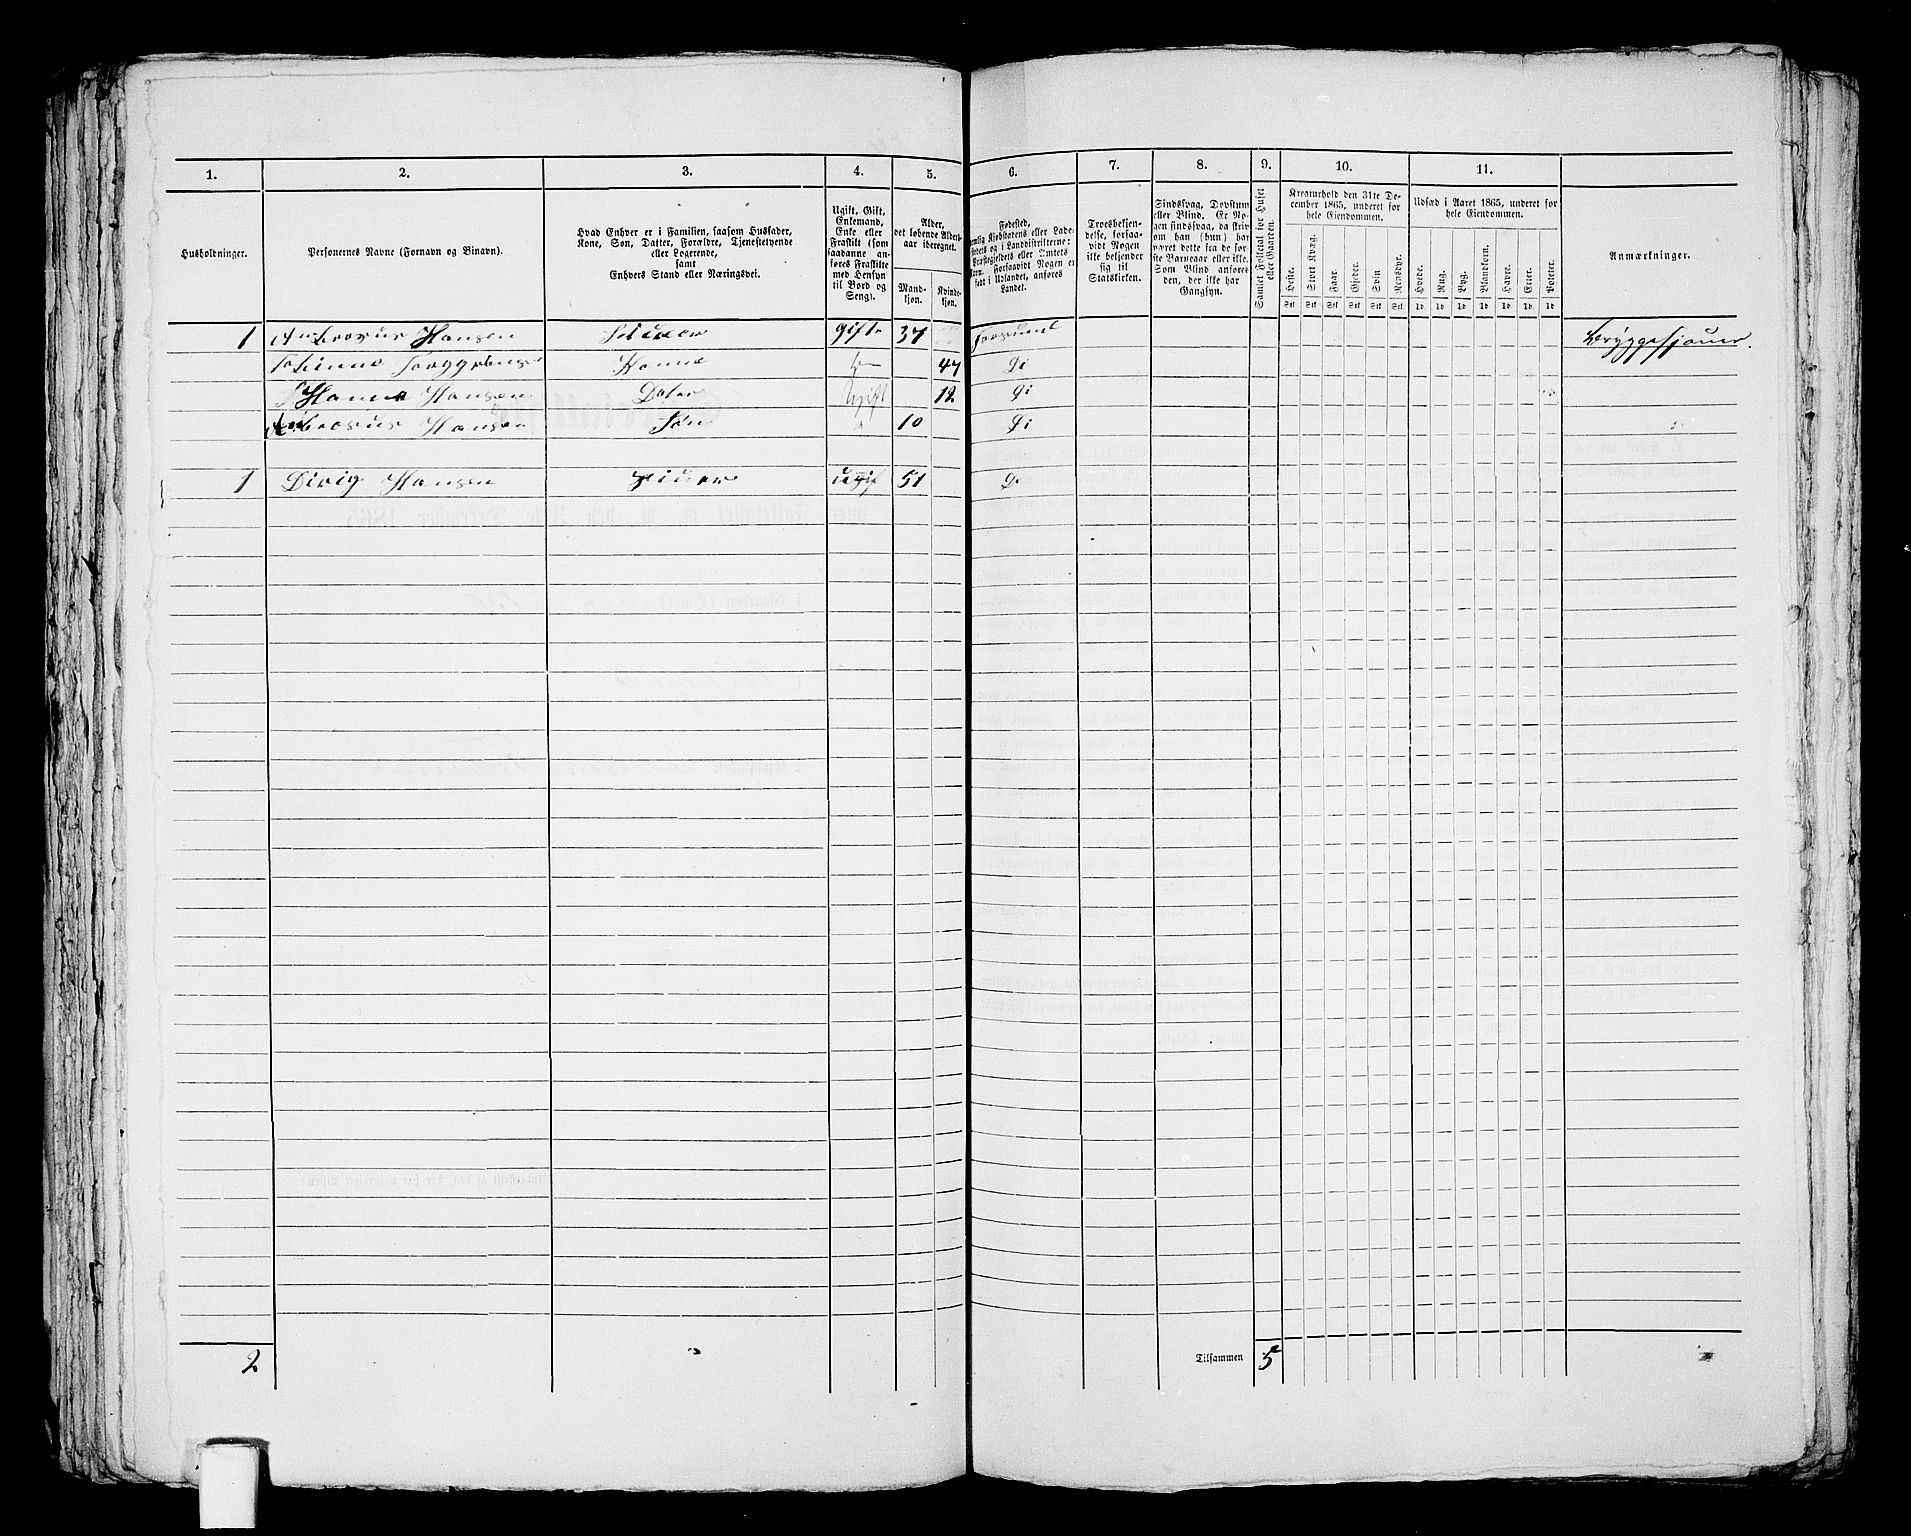 1. 2. 3. 4. 5. 6. 7. 8. 9. 10. 11.
Husholdninger.
Personernes Navne (Fornavn og Binavn).
Hvad Enhver er i Familien, saasom Husfader,
Kone, Søn, Datter, Forældre, Tjenestetyende
eller Logerende,
samt
Enhvers Stand eller Næringsvei.
Ugift, Gift,
Enkemand,
Enke eller
Fraskilt (som
saadanne an-
føres Fraskilte
med Hensyn
til Bord og
Seng).
Alder,
det løbende Alders-
aar iberegnet.
Mand-
kjøn.
Kvinde-
kjøn.
Fødested,
nemlig Kjøbstadens eller Lade-
stedets og i Landdistrikterne:
Præstegjeldets eller Amtets
Navn. Forsaavidt Nogen er
født i Udlandet, anføres
Landet.
Troesbekjen-
delse, forsaa-
vidt Nogen
ikke bekjender
sig til
Statskirken.
Sindssvag, Døvstum
eller Blind. Er No-
gen sindssvag, da skriv
om han (hun) har
været dette fra de før-
ste Barneaar eller ikke.
Som Blind anføres
den, der ikke har
Gangsyn.
Samlet Folketal for Huset
eller Gaarden.
Kreaturhold den 31te De-
cember 1865, underet for
hele Eiendommen.
Heste. Stort Kvæg. Faar. Gjeder. Svin. Rensdyr.
Stk Stk Stk Stk Stk Stk
Udsæd i Aaret 1865, underet for
hele Eiendommen.
Hvede. Rug. Byg. Blandkorn. Havre. Erter. Poteter.
Td. Td. Td. Td. Td. Td. Td
Anmærkninger.
1 Hansen gifte 37 Bryggesjouer.
Konne 47 Di
Hanna Hansen Doter Ugift 12 Di
Hansen Søn 10 Di
1 Hansen ugif 51 D
2 Tilsammen 5